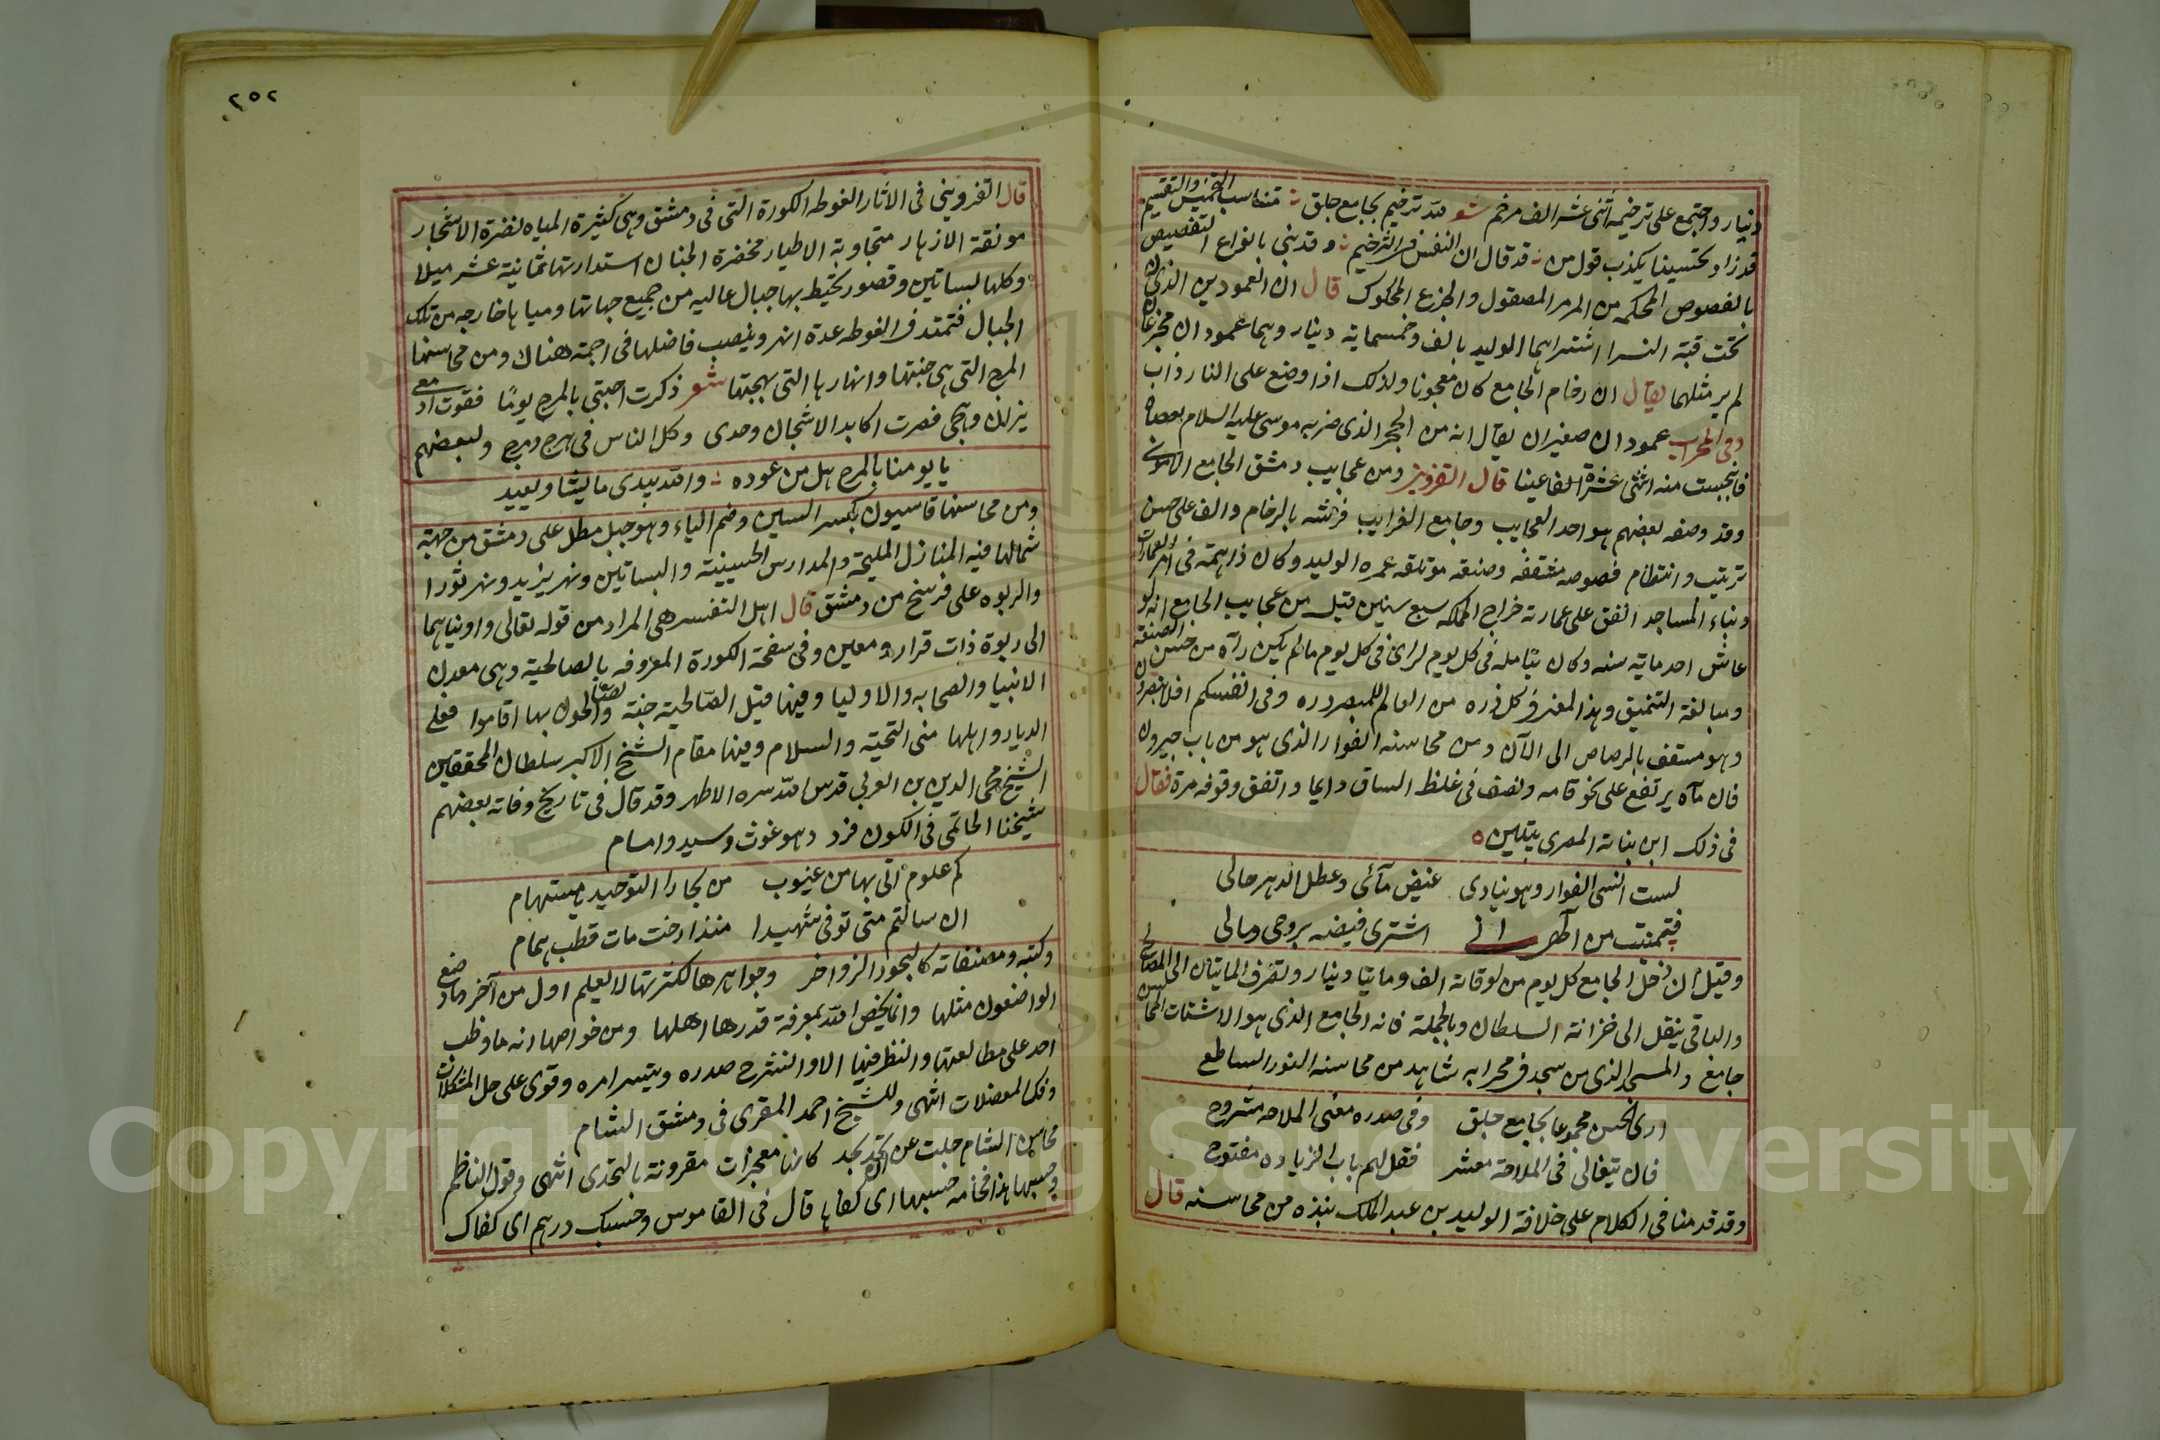 دينار واجتمع على ترخيمه اثنى عشر الف مرخم شعر لله ترخيم بجامع جلق متناسب التخميس والتقسيم
قد زاد تحسينا يكذب قول من قد قال ان النفس في الترخيم وقد بني بانواع التفصيص
بالفصوص المحكمه من المرمر المصقول والجزع المحكوك قال ان العمودين الذي
تحت قبة النسر اشتراهما الوليد بالف وخمسماية دينار وهما عمودان مجزعان
لم ير مثلهما يقال ان رخام الجامع كان معجونا ولذلك اذا وضع على النار ذاب
وفي المحراب عمودان صغيران يقال انه من الحجر الذي ضربه موسى عليه السلام بعصاه
فانبجست منه اثنتى عشرة الفا عينا قال القزويني ومن عجايب دمشق الجامع الاموي
وقد وصفه بعضهم هو احد العجايب وجامع الغرايب فرشه بالرخام والف على حسن
ترتيب وانتظام فصوصه متفقه وصنعه مؤتلقه عمره الوليد وكان ذا همة في امر العمارات
وبناء المساجد انفق على عمارته خراج المملكه سبع سنين قيل من عجايب الجامع انه لو
عاش احد ماية سنه وكان يتامله في كل يوم لراى في كل يوم ما لم يكن رآه من حسن الصنعة
ومبالغة التنميق وهذا المعنى في كل ذره من العالم للمبصر وفي انفسكم افلا تبصرون
وهو مسقف بالرصاص الى الآن ومن محاسنه الفوار الذي هو من باب جيرون
فان مآه يرتفع على نحو قامه ونصف في غلظ الساق دايما واتفق وقوفه مرة فقال
في ذلك ابن نباتة المصري بيتين
لست انسى الفوار وهو ينادى غيض مآئي وعطل الدهر حالي
فتمنيت من انى اشترى فيضه بروحي ومالي
وقيل ان دخل الجامع كل يوم من اوقافه الف ومايتا دينار وتصرف المايتان الى المصالح
والباقي ينقل الى خزانة السلطان وبالجملة فانه الجامع الذي هو لاشتات المحاسن
جامع والمسجد الذي من سجد في محرابه شاهد من محاسنه النور الساطع
ارى الحسن مجموعا بجامع جلق وفي صدره معنى الملاحه مشروح
فان يتغالى في الملاحة معشر فقل لهم باب الزياده مفتوح
وقد قدمنا في الكلام على خلافة الوليد بن عبد الملك نبذه من محاسنه قال
٢٥٢
قال القزويني في الاثار الغوطه الكورة التي في دمشق وهي كثيرة المياه نضرة الاشجار
مونقة الازهار متجاوبة الاطيار مخضرة الجنان استدارتها ثمانية عشر ميلا
وكلها بساتين وقصور تحيط بها جبال عاليه من جميع جهاتها ومياها خارجه من تلك
الجبال فتمتد في الغوطه عدة انهر وينصب فاضلها في اجمة هناك ومن محاسنها
المرج التي هي جنتها وانهارها التي بهجتها شعر ذكرت احبتي بالمرج يومًا فقوت ادمعي
نيران وهجي فصرت اكابد الاشجان وحدى وكل الناس في هرج ومرج ولبعضهم
يا يومنا بالمرج هل من عوده والله يبدي ما يشا ويعيد
ومن محاسنها قاسيون بكسر السين وضم الياء وهو جبل مطل على دمشق من جهة
شمالها فيه المنازل المليحة والمدارس الحسينية والبساتين ونهر يزيد ونهر ثورا
والربوه على فرسخ من دمشق قال اهل التفسير هي المراد من قوله تعالى واويناهما
الى ربوة ذات قرار ومعين وفي سفحة الكورة المعروفه بالصالحية وهي معدن
الانبيا والصحابه والاوليا وفيها قيل الصالحية جنة والصالحون بها اقاموا فعلى
الديار واهلها منى التحية والسلام وفيها مقام الشيخ الاكبر سلطان المحققين
الشيخ محي الدين بن العربي قدس الله سره الاطهر وقد قال في تاريخ وفاته بعضهم
شيخنا الحاتمي في الكون فرد وهو غوث وسيد وامام
كم علوم اتى بها من غيوب من بحار التوحيد يا مستهام
ان سالتم متى توفى شهيدا منذ ارخت مات قطب همام
وكتبه ومصنفاته كالبحور الزواخر وجواهرها لكثرتها لا يعلم اول من آخر ما وضع
الواضعون مثلها وانما يخص الله بمعرفة قدرها اهلها ومن خواصها انه ما وظب
احد على مطالعتها والنظر فيها الا وانشرح صدره وتيسر امره وقوى على حل المشكلات
وفك المعضلات انتهى وللشيخ احمد المقرى في دمشق الشام
محاسن الشام جلت عن ان تحد بحد كانها معجزات مقرونة بالتحدى انتهى وقول الناظم
وحسبها هذا فخامه حسبها اى كفاها قال في القاموس وحسبك درهم اى كفاك
Copyright © King Saud University